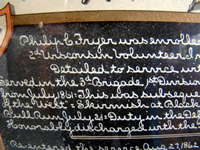 Philip C. Fryer was enrolled
2nd Wisconsin volunteer
Detailed to service with
Served in the 3rd Brigade, 1st Division
from July 1861. This was subseque
of the West" Skirmish at Black
Bull Run July 21. Duty in the Def
Honorably discharged with the
Re-entered the service Aug. 27, 1862